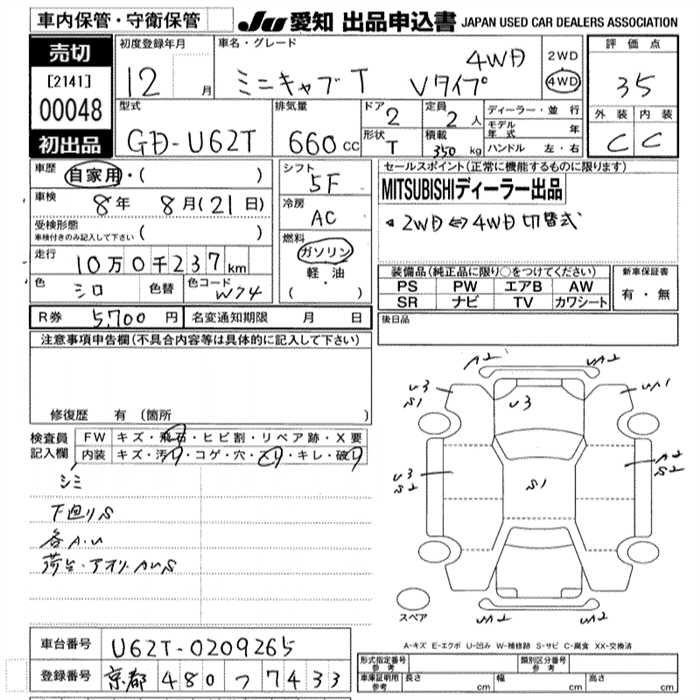 車内保管・守衛保管
JU 愛知 出品申込書 JAPAN USED CAR DEALERS ASSOCIATION
売切
[2141]
00048
初出品
初度登録年月
12 月
車名・グレード
ミニキャブT Vタイプ 4WD
2WD
4WD
評価点
35
外装 内装
C C
型式
GD-U62T
排気量
660 cc
ドア 2
形状 T
定員 2 人
積載 350 kg
ディーラー・並行
モデル年式 年
ハンドル 左・右
車歴 自家用・( )
車検 8年 8月(21日)
受検形態
車検付きのみ記入して下さい ( )
走行 10万0千237km
色 シロ 色替 色コード W74
シフト 5F
冷房 AC
燃料
ガソリン
軽油
( ・ )
セールスポイント(正常に機能するものに限ります)
MITSUBISHIディーラー出品
2WD⇔4WD切替式
装備品(純正品に限り○をつけてください)
PS PW エアB AW
SR ナビ TV カワシート
新車保証書
有・無
R券 5,700 円 名変通知期限 月 日
後日品
注意事項申告欄(不具合内容等は具体的に記入して下さい)
修復歴 有 (箇所 )
検査員記入欄
FW キズ・飛石・ヒビ割・リペア跡・X要
内装 キズ・汚れ・コゲ・穴・スレ・キレ・破れ
シミ
下廻りS
各A.U
荷台・アオリAUS
A2 UA2
U3 S1
U3
UA1
U3 S2
S1
A2 S2
UA2 UA2
スペア
A-キズ E-エクボ U-凹み W-補修跡 S-サビ C-腐食 XX-交換済
車台番号 U62T-0209265
登録番号 京都 480 つ 7433
形式指定番号 参考
類別区分番号 参考
車庫証明用 参考 長さ cm 幅 cm 高さ cm